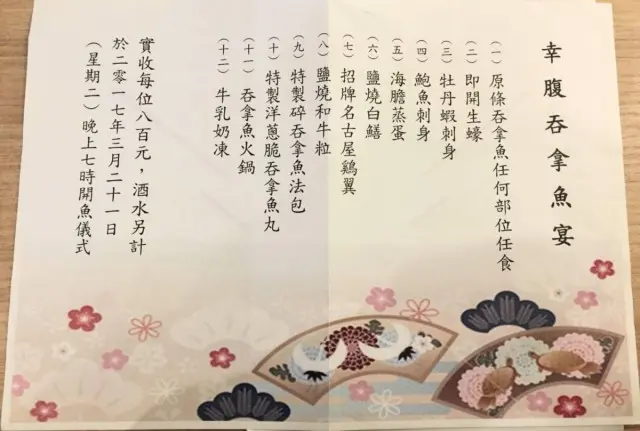 幸腹吞拿魚宴
（一）原條吞拿魚任何部位任食
（二）即開生蠔
（三）牡丹蝦刺身
（四）鮑魚刺身
（五）海膽蒸蛋
（六）鹽燒白鱔
（七）招牌名古屋鷄翼
（八）鹽燒和牛粒
（九）特製碎吞拿魚法包
（十）特製洋蔥脆吞拿魚丸
（十一）吞拿魚火鍋
（十二）牛乳奶凍
實收每位八百元，酒水另計
於二零一七年三月二十一日
（星期二）晚上七時開魚儀式